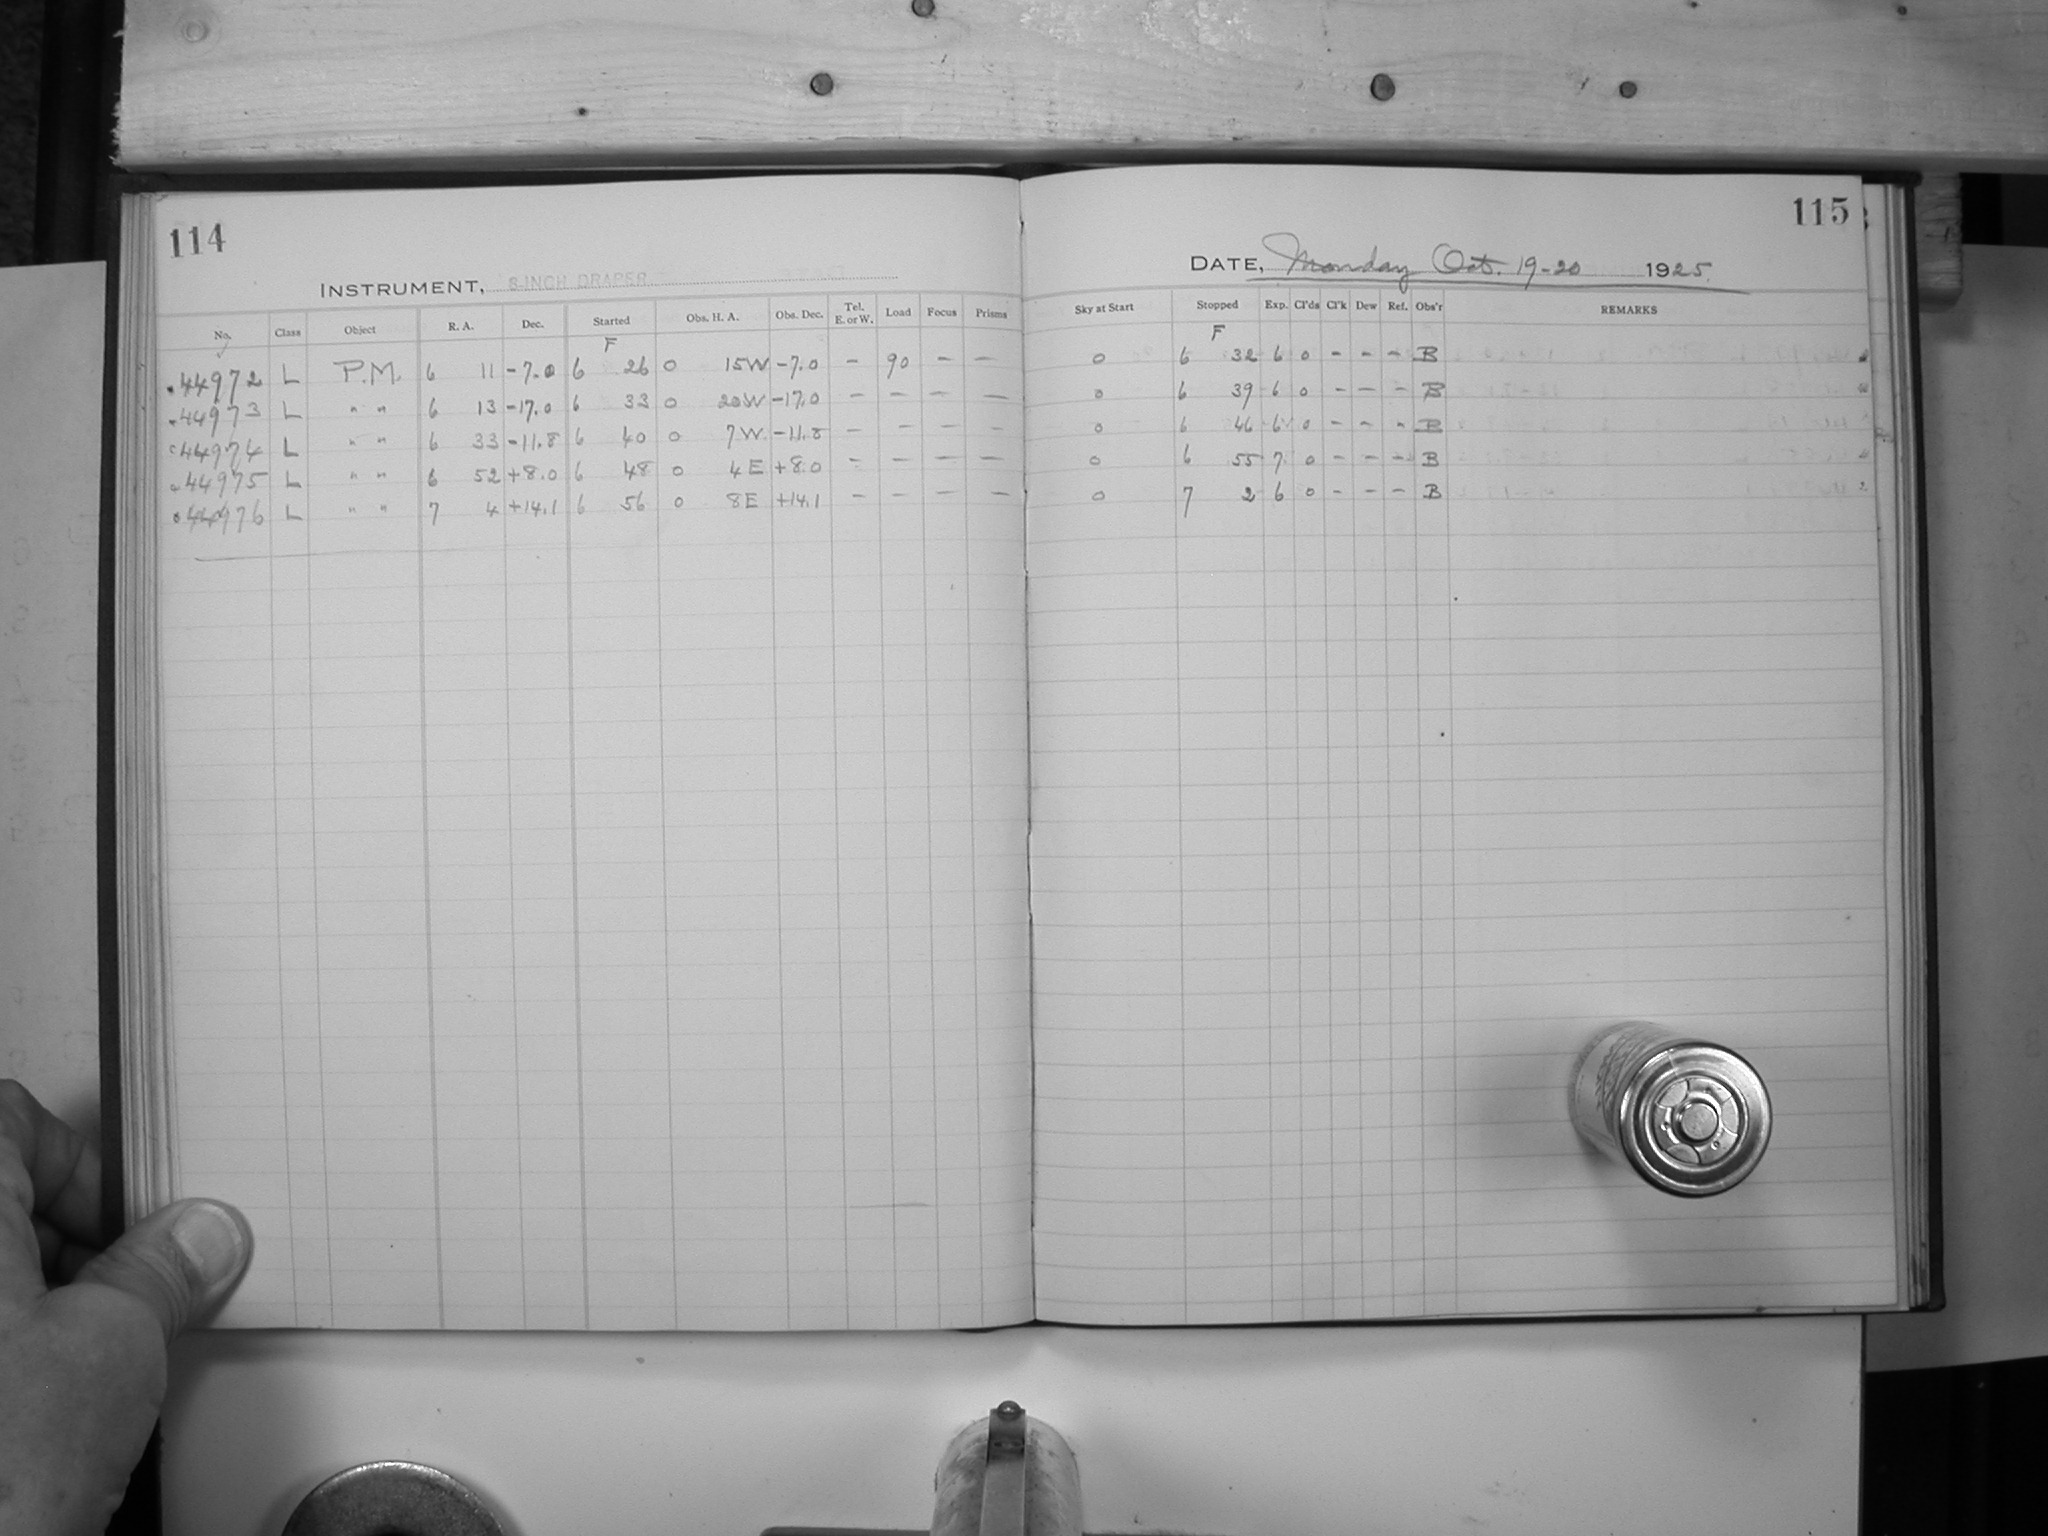 114
INSTRUMENT, 8-INCH DRAPER
No. Class Object R. A. Dec. Started Obs. H. A. Obs. Dec. Tel. E. or W. Load Focus Prisms
F
44972 L P.M. 6 11 -7.0 6 26 0 15W -7.0 - 90 - -
44973 L " " 6 13 -17.0 6 33 0 20W -17.0 - - - -
44974 L " " 6 33 -11.8 6 40 0 7W. -11.8 - - - -
44975 L " " 6 52 +8.0 6 48 0 4E +8.0 - - - -
44976 L " " 7 4 +14.1 6 56 0 8E +14.1 - - - -
115
DATE, Monday Oct. 19-20 1925.
Sky at Start Stopped Exp. Cl'ds Cl'k Dew Ref. Obs'r REMARKS
F
0 6 32 6 0 - - - B
0 6 39 6 0 - - - B
0 6 46 6 0 - - - B
0 6 55 7 0 - - - B
0 7 2 6 0 - - - B